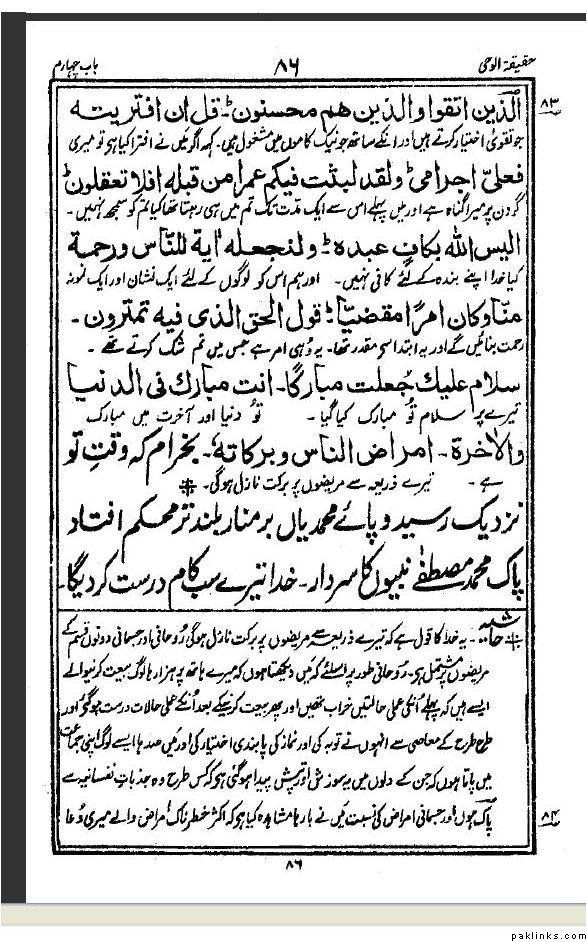 حقیقۃ الوحی
۸۶
باب چہارم
۸۳
الذین اتقوا والذین ھم محسنون۔ قل ان افتریتہ
جو تقویٰ اختیار کرتے ہیں اور انکے ساتھ جو نیک کاموں میں مشغول ہیں۔ کہہ اگر میں نے افترا کیا ہو تو میری
فعلیّ اجرامی۔ ولقد لبثت فیکم عمرا من قبلہ افلا تعقلون۔
گردن پر میرا گناہ ہے اور میں پہلے اس سے ایک مدّت تک تم میں ہی رہتا تھا کیا تم کو سمجھ نہیں۔
الیس اللہ بکاف عبدہ۔ ولنجعلہ اٰیۃ للنّاس ورحمۃ
کیا خدا اپنے بندہ کے لئے کافی نہیں۔ اور ہم اس کو لوگوں کے لئے ایک نشان اور ایک نمونہ
منّا وکان امرًا مقضیّا۔ قول الحق الذی فیہ تمترون۔
رحمت بنائیں گے اور یہ ابتدا سے مقدر تھا۔ یہ وُہی امر ہے جس میں تم شک کرتے تھے۔
سلام علیک جُعلت مبارکًا۔ انت مبارک فی الدنیا
تیرے پر سلام تُو مبارک کیا گیا۔ تُو دنیا اور آخرت میں مبارک
والاٰخرۃ۔ امراض الناس وبرکاتہٗ۔ بخرام کہ وقتِ تو
ہے۔ تیرے ذریعہ سے مریضوں پر برکت نازل ہوگی۔
نزدیک رسید و پائے محمدیاں بر منار بلند تر محکم افتاد
پاک محمد مصطفٰے نبیوں کا سردار۔ خدا تیرے سب کام درست کر دیگا۔
حاشیہ۔ یہ خدا کا قول ہے کہ تیرے ذریعہ سے مریضوں پر برکت نازل ہوگی رُوحانی اور جسمانی دونوں قسم کے
مریضوں پر مشتمل ہے۔ رُوحانی طور پر اسلئے کہ میں دیکھتا ہوں کہ میرے ہاتھ پر ہزارہا لوگ بیعت کرنیوالے
ایسے ہیں کہ پہلے اُنکی عملی حالتیں خراب تھیں اور پھر بیعت کرنیکے بعد اُنکے عملی حالات درست ہوگئے اور
طرح طرح کے معاصی سے انہوں نے توبہ کی اور نماز کی پابندی اختیار کی اور میں صدہا ایسے لوگ اپنی جماعت
میں پاتا ہوں کہ جن کے دلوں میں یہ سوزش اور تپش پیدا ہوگئی ہے کہ کس طرح وہ جذبات نفسانیہ سے
پاک ہوں اور جسمانی امراض کی نسبت میں نے بارہا مشاہدہ کیا ہے کہ اکثر خطرناک امراض والے میری دُعا
۸۴
۸۶
paklinks.com